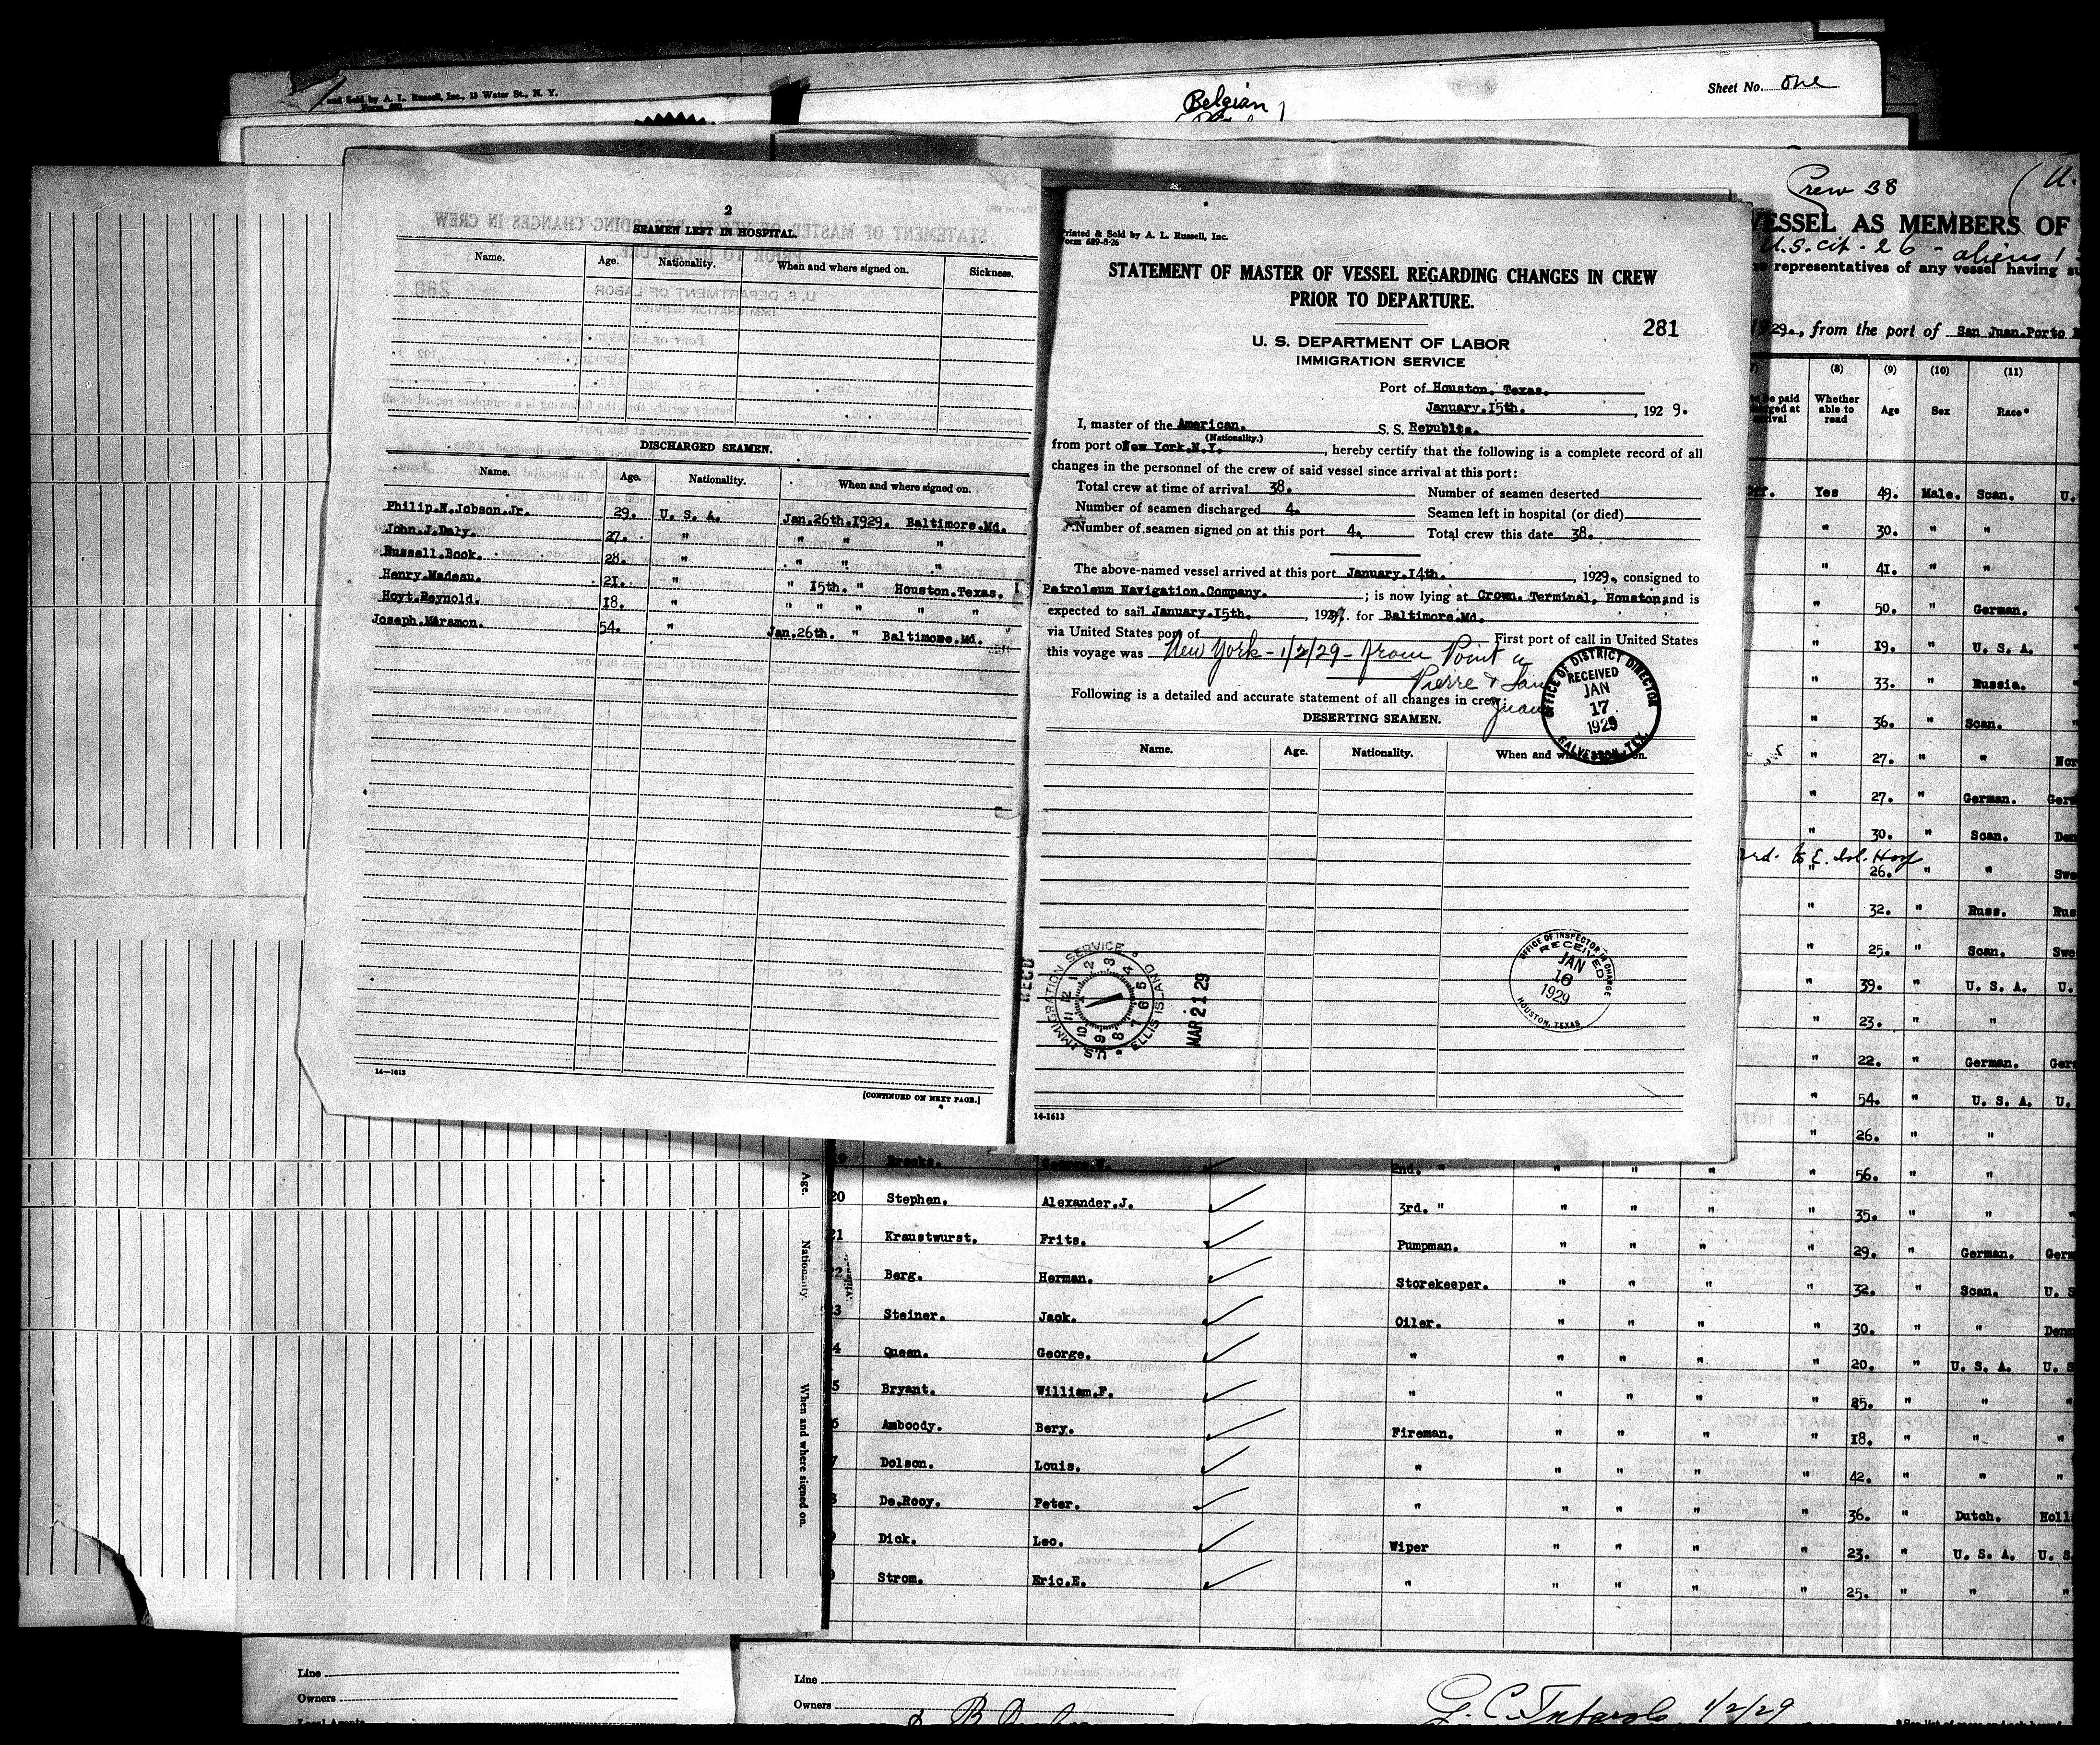 and Sold by A. L. Russell, Inc., 13 Water St., N. Y.
Form 689
Belgian
Sheet No. One
Crew 38
VESSEL AS MEMBERS OF
U.S. cit - 26 - aliens 1
representatives of any vessel having su
1929., from the port of San Juan.Porto
2
SEAMEN LEFT IN HOSPITAL.
Name. Age. Nationality. When and where signed on. Sickness.
DISCHARGED SEAMEN.
Name. Age. Nationality. When and where signed on.
Philip.N.Jobson.Jr. 29. U. S. A. Jan.26th.1929. Baltimore.Md.
John.J.Daly. 27. " " " "
Russell.Book. 28. " " " "
Henry.Nadeau. 21. " " 15th. " Houston.Texas.
Hoyt.Reynold. 18. " " " " " "
Joseph.Miramon. 54. " Jan.26th. " Baltimore.Md.
14—1613
[CONTINUED ON NEXT PAGE.]
Printed & Sold by A. L. Russell, Inc.
Form 689-8-26
STATEMENT OF MASTER OF VESSEL REGARDING CHANGES IN CREW
PRIOR TO DEPARTURE.
281
U. S. DEPARTMENT OF LABOR
IMMIGRATION SERVICE
Port of Houston, Texas.
January.15th. , 192 9.
I, master of the American. S. S. Republic.
(Nationality.)
from port of New York.N.Y. , hereby certify that the following is a complete record of all
changes in the personnel of the crew of said vessel since arrival at this port:
Total crew at time of arrival 38. Number of seamen deserted
Number of seamen discharged 4. Seamen left in hospital (or died)
Number of seamen signed on at this port 4. Total crew this date 38.
The above-named vessel arrived at this port January.14th. , 1929., consigned to
Petroleum Navigation.Company. ; is now lying at Crown. Terminal, Houston, and is
expected to sail January.15th. , 1929. for Baltimore.Md.
via United States port of First port of call in United States
this voyage was New York - 1/2/29 - from Point a
Pierre & San
Juan
Following is a detailed and accurate statement of all changes in crew.
DESERTING SEAMEN.
Name. Age. Nationality. When and where signed on.
OFFICE OF DISTRICT DIRECTOR
RECEIVED
JAN
17
1929
GALVESTON, TEX.
OFFICE OF INSPECTOR IN CHARGE
RECEIVED
JAN
16
1929
HOUSTON, TEXAS
REC'D
U.S. IMMIGRATION SERVICE
ELLIS ISLAND
1 2 3 4 5 6 7 8 9 10 11 12
MAR 21 29
14-1613
(8) (9) (10) (11)
Whether able to read Age Sex Race*
Yes 49. Male. Scan. U.
" 30. " "
" 41. " "
" 50. " German.
" 19. " U. S. A.
" 33. " Russia.
" 36. " Scan.
" 27. " " Nor
" 27. " German. Germ
" 30. " Scan. Den
" 26. " " Swe
" 32. " Russ. Rus
" 25. " Scan. Swe
" 39. " U. S. A. U.
" 23. " "
" 22. " German. Ger
" 54. " U. S. A. U.
" 26. " "
Brooks. 2nd. " " " " " 56. " "
20 Stephen. Alexander.J. 3rd. " " " " " 35. " " "
21 Kraustwurst. Frits. Pumpman. " " " " 29. " German. Germ
22 Berg. Herman. Storekeeper. " " " " 32. " Scan. U. S
3 Steiner. Jack. Oiler. " " " " 30. " " Denm
4 Queen. George. " " " " " 20. " U. S. A. U. S
5 Bryant. William.F. " " " " " 25. " " "
6 Amboody. Bery. Fireman. " " " " 18. " " "
7 Dolson. Louis. " " " " " 42. " " "
8 De.Rooy. Peter. " " " " " 36. " Dutch. Holl
9 Dick. Leo. Wiper " " " " 23. " U. S. A. U. S
Strom. Eric.E. " " " " " 25. " " "
Age. Nationality. When and where signed on.
Line
Owners
Local Agents
Line
Owners
1/2/29